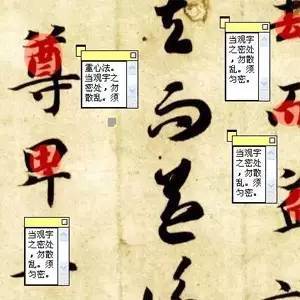 去而益
去而益詠
尊卑
重心法。
当观字之
密处，勿
散乱。须
匀密。
当观字
之密处
，勿散
乱。须
匀密。
当观字
之密处
，勿散
乱。须
匀密。
当观字
之密处
，勿散
乱。须
匀密。